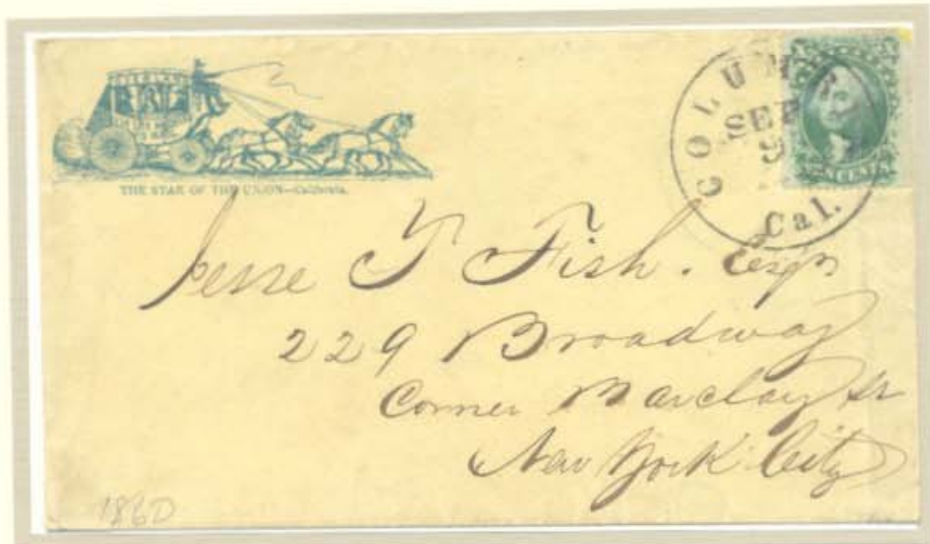 OVERLAND
THE STAR OF THE UNION—California.
COLUM
SEP
9
Cal.
Jesse T Fish. Esqr
229 Broadway
Corner Barclay St
New York City
1860